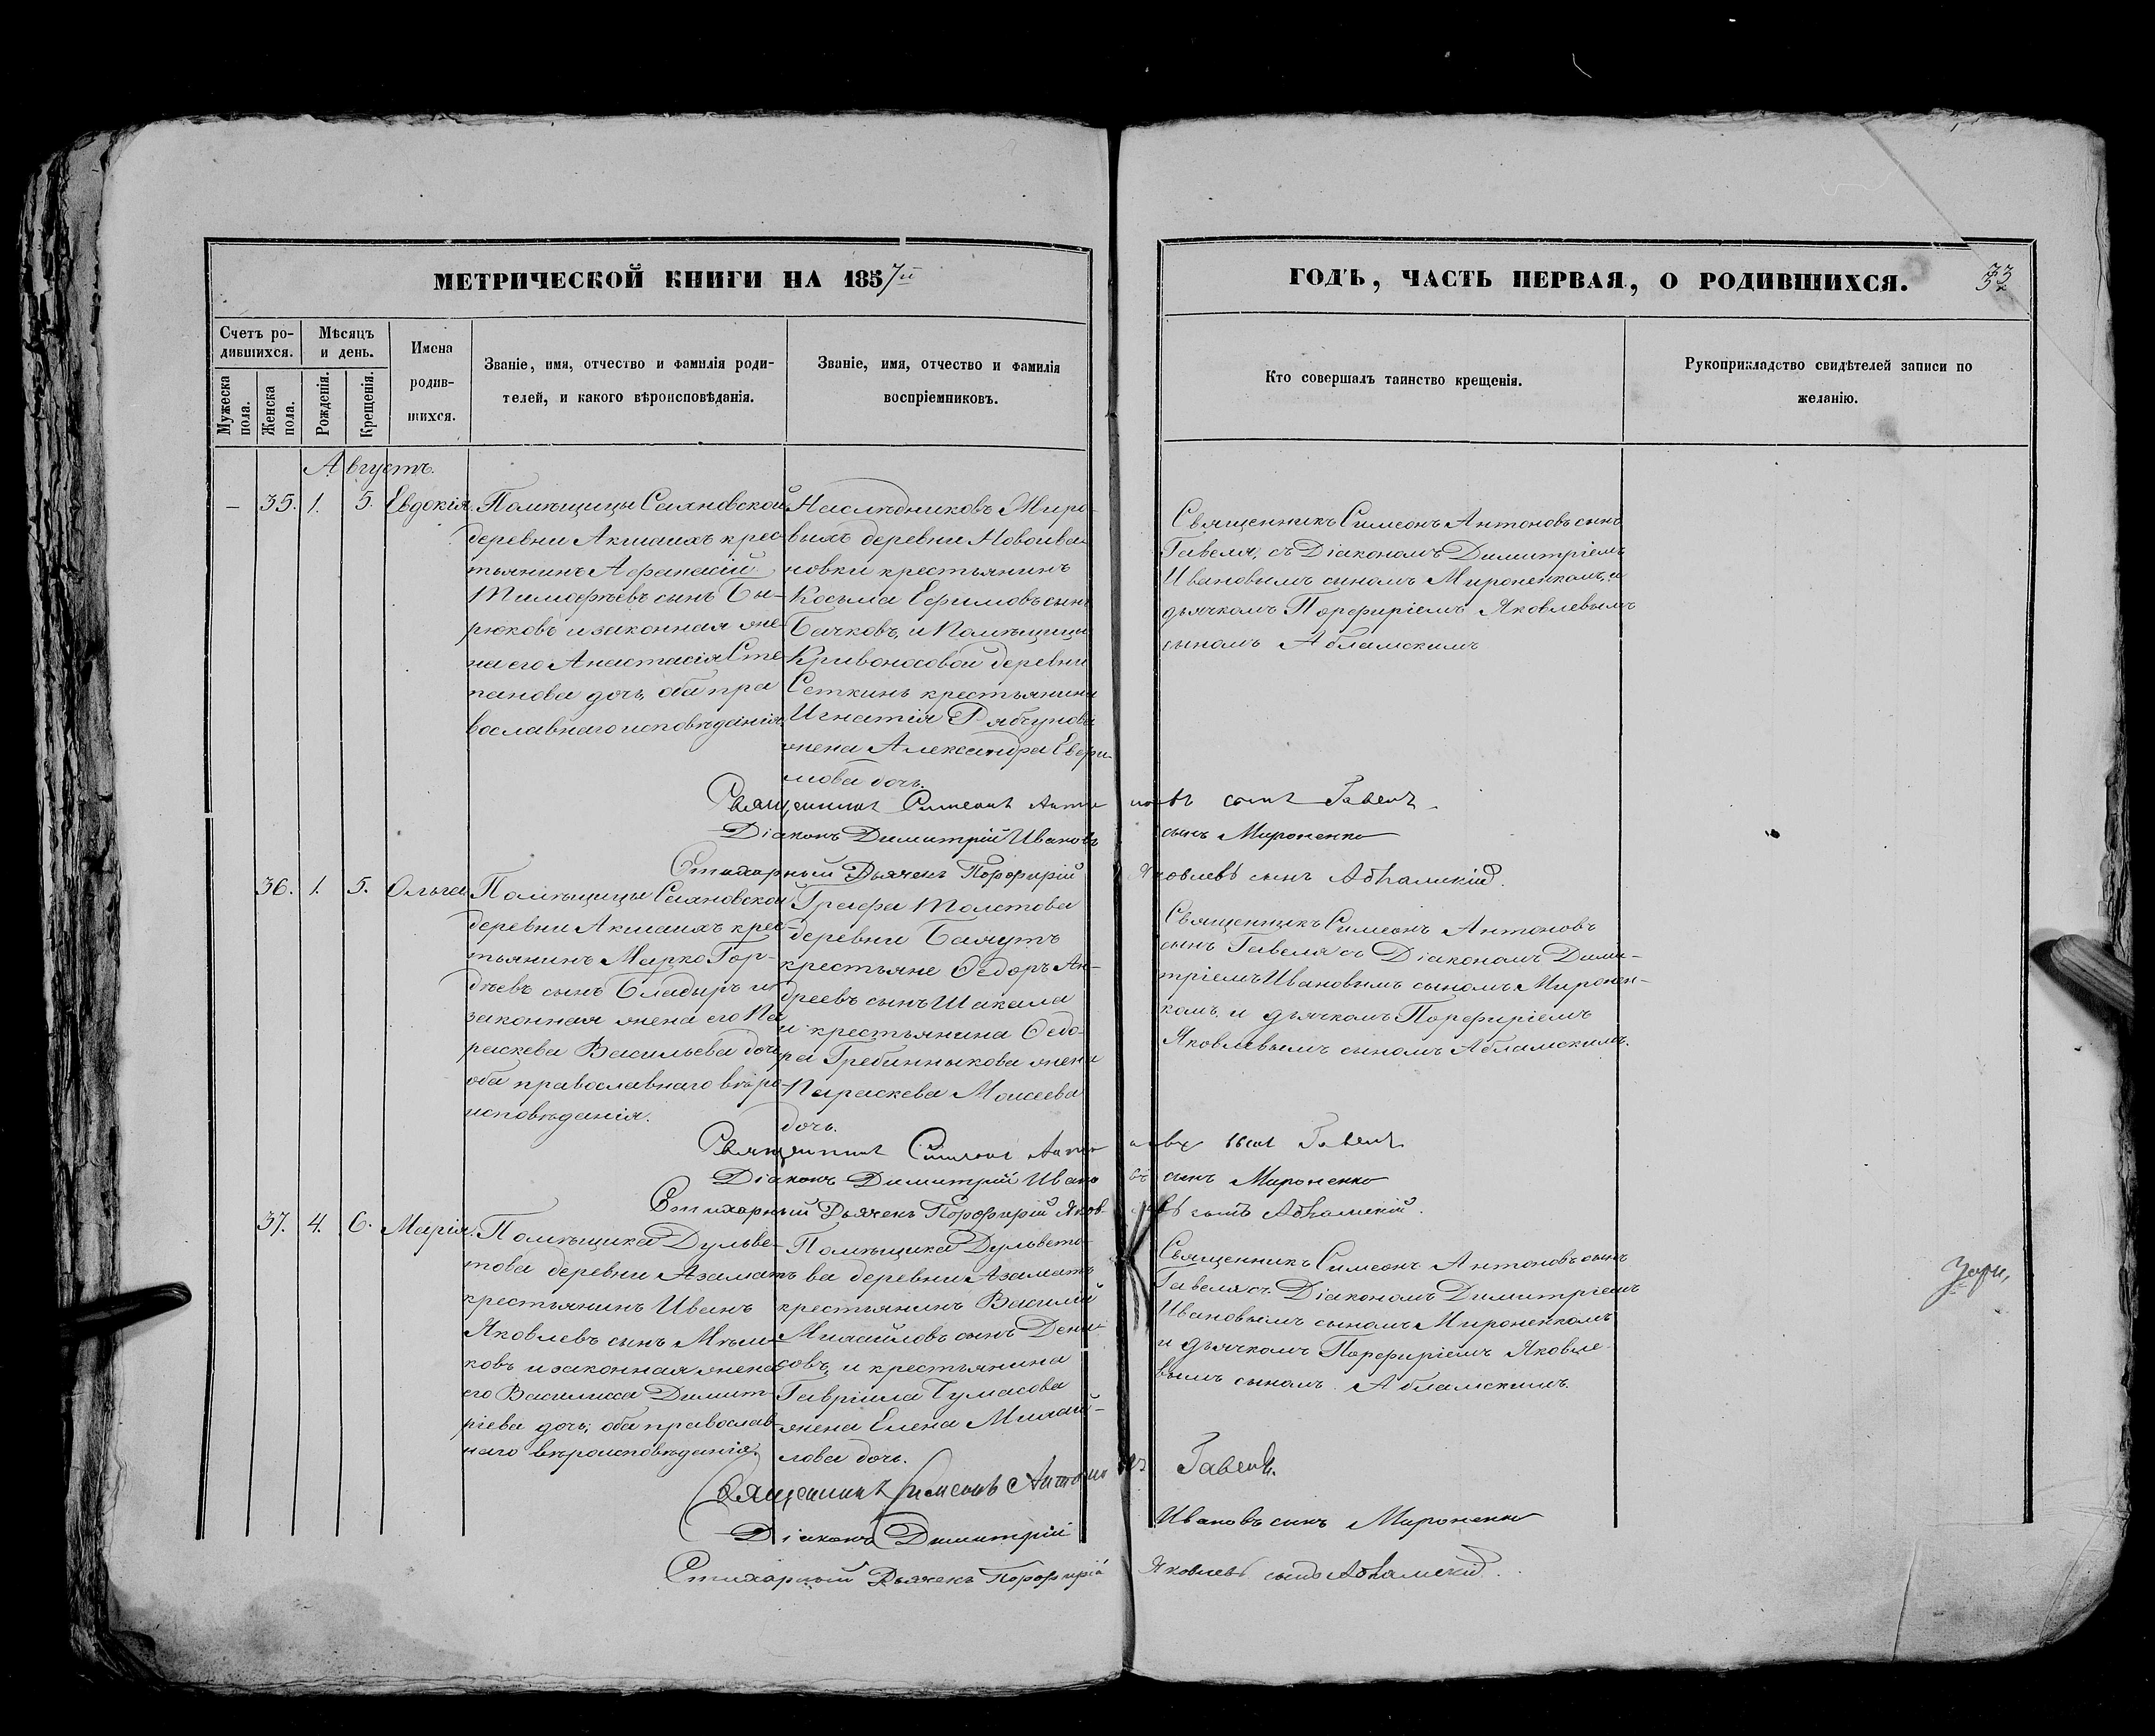 МЕТРИЧЕСКОЙ КНИГИ НА 1857й
ГОДЪ, ЧАСТЬ ПЕРВАЯ, О РОДИВШИХСЯ.
33
Счетъ ро-
дившихся.
Мужеска пола.
Женска пола.
Мѣсяцъ
и день.
Рожденія.
Крещенія.
Имена
родив-
шихся.
Званіе, имя, отчество и фамилія роди-
телей, и какого вѣроисповѣданія.
Званіе, имя, отчество и фамилія
воспріемниковъ.
Кто совершалъ таинство крещенія.
Рукоприкладство свидѣтелей записи по
желанію.
Августъ.
— 35. 1. 5. Евдокія.
Помѣщицы Саяновской
деревни Акмаихъ крес-
тьянинъ Афанасій
Тимофѣевъ сынъ Би-
рюковъ и законная же-
на его Анастасія Сте-
панова дочь, оба пра
вославнаго исповѣданія.
Наслѣдниковъ Миро-
выхъ деревни Новоива-
новки крестьянинъ
Косьма Ефимовъ сынъ
Бачковъ, и Помѣщицы
Кривоносовой деревни
Сеткинъ крестьянина
Игнатія Рябчунова
жена Александра Евфи-
мова дочь.
Священникъ Симеонъ Антоновъ сынъ
Гавеля, съ Діакономъ Димитріемъ
Ивановымъ сыномъ Мироненкомъ, и
дьячкомъ Порфиріемъ Яковлевымъ
сыномъ Абламскимъ
Священникъ Симеонъ Антоновъ сынъ Гавель
Діаконъ Димитрій Ивановъ сынъ Мироненко
Стихарный Дьячекъ Порфирій Яковлевъ сынъ Абламскій.
36. 1. 5. Ольга.
Помѣщицы Саяновской
деревни Акмаихъ крес-
тьянинъ Марко Гор-
дѣевъ сынъ Бладыръ и
законная жена его Па
раскева Васильева дочь
оба православнаго вѣро-
исповѣданія.
Графа Толстова
деревни Баяутъ
крестьяне Ѳедоръ Ан-
дреевъ сынъ Шакала
и крестьянина Ѳедо-
ра Гребинныкова жена
Параскева Моисеева
дочь.
Священникъ Симеонъ Антоновъ
сынъ Гавеля съ Діакономъ Дими-
тріемъ Ивановымъ сыномъ Миронен-
комъ, и дьячкомъ Порфиріемъ
Яковлевымъ сыномъ Абламскимъ.
Священникъ Симеонъ Антоновъ сынъ Гавель
Діаконъ Димитрій Ивановъ сынъ Мироненко
Стихарный Дьячекъ Порфирій Яковлевъ сынъ Абламскій.
37. 4. 6. Марія.
Помѣщика Дульве-
това деревни Азаматъ
крестьянинъ Иванъ
Яковлевъ сынъ Мѣши-
ковъ и законная жена
его Василиса Димит-
ріева дочь; оба православ-
наго вѣроисповѣданія.
Помѣщика Дульвето-
ва деревни Азаматъ
крестьянинъ Василій
Михайловъ сынъ Дени-
совъ, и крестьянина
Гавріила Чумасова
жена Елена Михай-
лова дочь.
Священникъ Симеонъ Антоновъ сынъ
Гавеля съ Діакономъ Димитріемъ
Ивановымъ сыномъ Мироненкомъ
и дьячкомъ Порфиріемъ Яковле-
вымъ сыномъ Абламскимъ.
Священникъ Симеонъ Антоновъ Гавель.
Діаконъ Димитрій Ивановъ сынъ Мироненко
Стихарный Дьячекъ Порфирій Яковлевъ сынъ Абламскій.